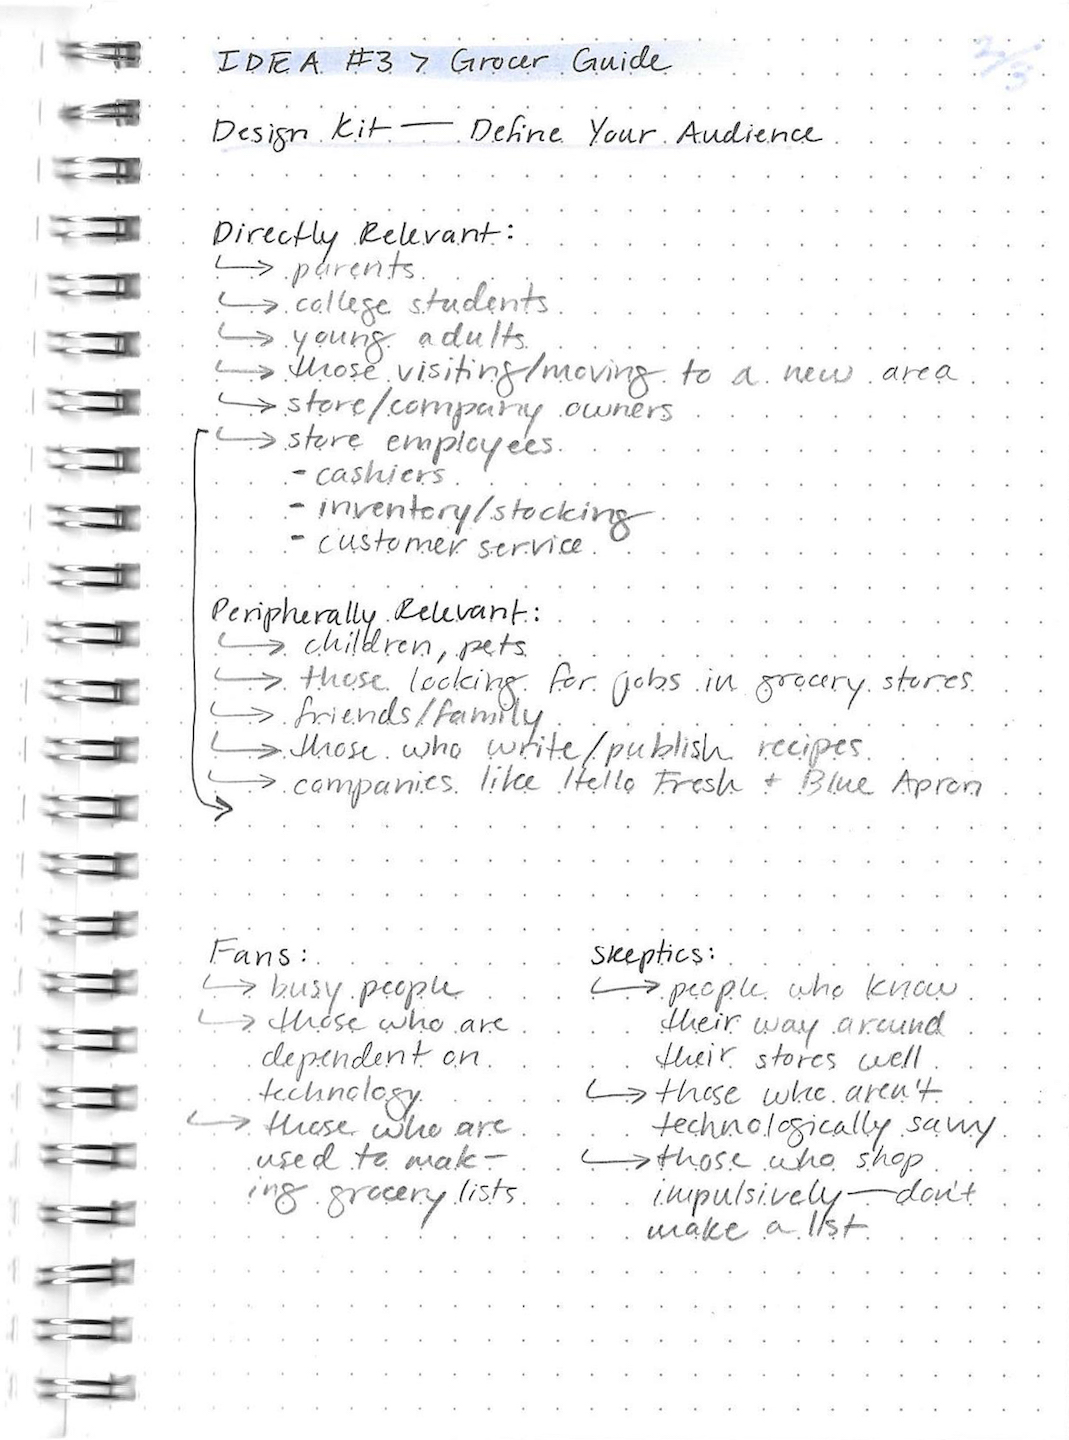 IDEA #3 > Grocer Guide
2/3
Design Kit — Define Your Audience
Directly Relevant:
↳ parents
↳ college students
↳ young adults
↳ those visiting/moving to a new area
↳ store/company owners
↳ store employees
- cashiers
- inventory/stocking
- customer service
Peripherally Relevant:
↳ children, pets
↳ those looking for jobs in grocery stores
↳ friends/family
↳ those who write/publish recipes
↳ companies like Hello Fresh + Blue Apron
Fans:
↳ busy people
↳ those who are
dependent on
technology
↳ those who are
used to mak-
ing grocery lists
Skeptics:
↳ people who know
their way around
their stores well
↳ those who aren't
technologically savvy
↳ those who shop
impulsively — don't
make a list